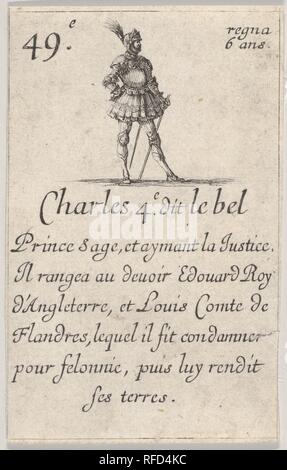 49.e
regna
6 ans.
Charles 4.e dit le bel
Prince sage, et aymant la Iustice.
Il rangea au devoir Edouard Roy
d'Angleterre, et Louis Comte de
Flandres, lequel il fit condamner
pour felonnie, puis luy rendit
ses terres.
alamy
Image ID: RFD4KC
www.alamy.com